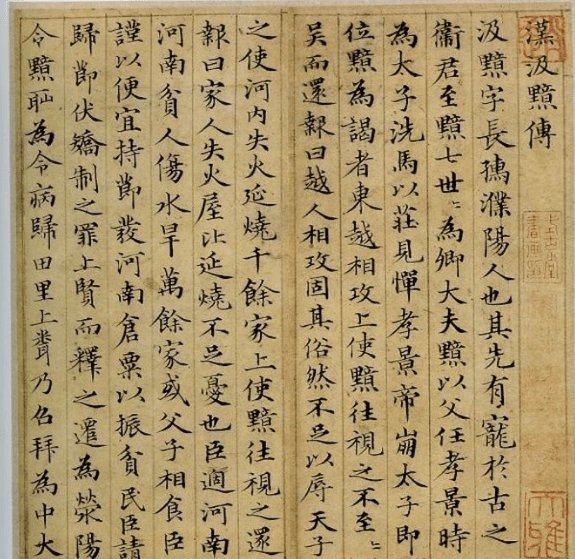 漢汲黯傳
汲黯字長孺濮陽人也其先有寵於古之
衞君至黯七世〻為卿大夫黯以父任孝景時
為太子洗馬以莊見憚孝景帝崩太子即
位黯為謁者東越相攻上使黯往視之不至〻
吳而還報曰越人相攻固其俗然不足以辱天子
之使河内失火延燒千餘家上使黯往視之還
報曰家人失火屋比延燒不足憂也臣適河南
河南貧人傷水旱萬餘家或父子相食臣
謹以便宜持節發河南倉粟以振貧民臣請
歸節伏矯制之罪上賢而釋之遷為滎陽
令黯恥為令病歸田里上聞乃召拜為中大